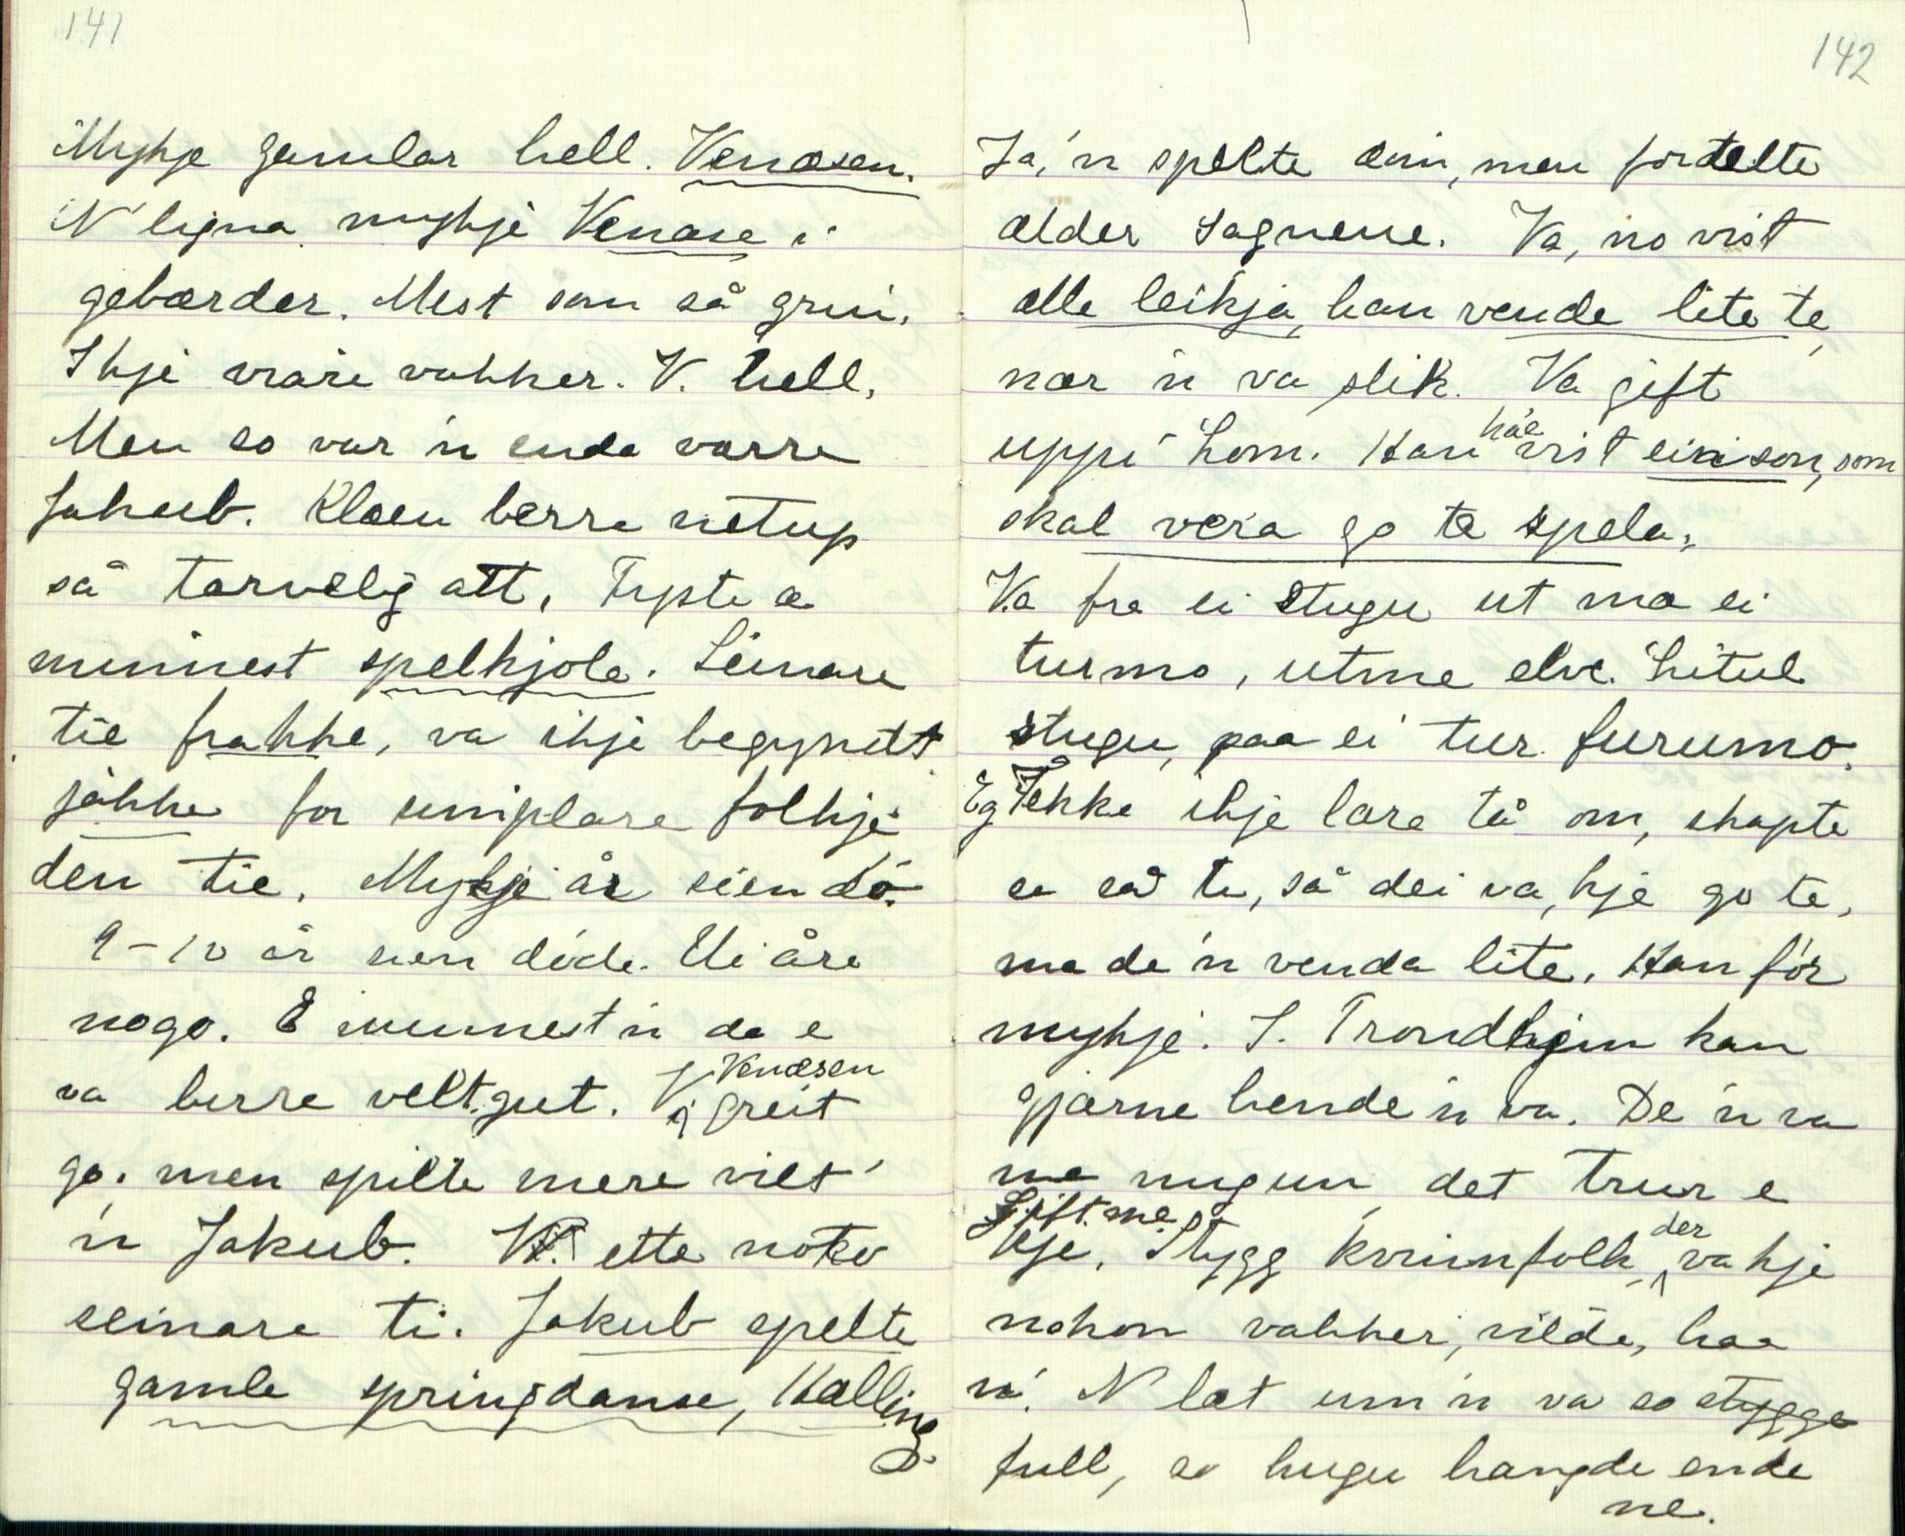 141
Mykje gamlar hell. Venæsen.
N ligna mykje Venæse i
gebærder. Mest som så grin.
Ikje vrare vakker. V. hell,
Men so var 'n enda varre
Jakub. Klæen berre netup
så tarvelig att. Fyste æ
minnest spelkjole. Seinare
tie frakke, va ikje begyndt
jåkke for simplare folkje
den tie. Mykje år sien dó.
9-10 år sien døde. Ui åre
nogo. E minnest 'n da e
va berre veltgut.
Venæsen
V. greit
go. men spilte mere vilt
'n Jakub. V. ette noko
seinare ti. Jakub spelte
gamle springdanse, Halling.
142
Ja, 'n spelte ein, men fortelte
alder sagnene. Va, no vist
alle leikja, han vende lite te,
nær 'n va slik. Va gift
uppi Lom. Han håe vist ein son, som
skal vera go te spela.
Va fra ei stugu ut ma ei
turmo, utme elve. Litul
stugu, paa ei tur furumo.
Eg fekke ikje lære tå om, skapte
e så te, så dei va, kje go te,
ma de 'n venda lite. Han fór
mykje. I. Trondhjem kan
gjærne hende 'n va. De 'n va
me nugun, det trur e
Gift me
kje. Stygg kvinnfolk, der va kje
nokon vakker, vilde, haa
'n. N læt um 'n va so stygge
full, so hugu hangde ende
ne.